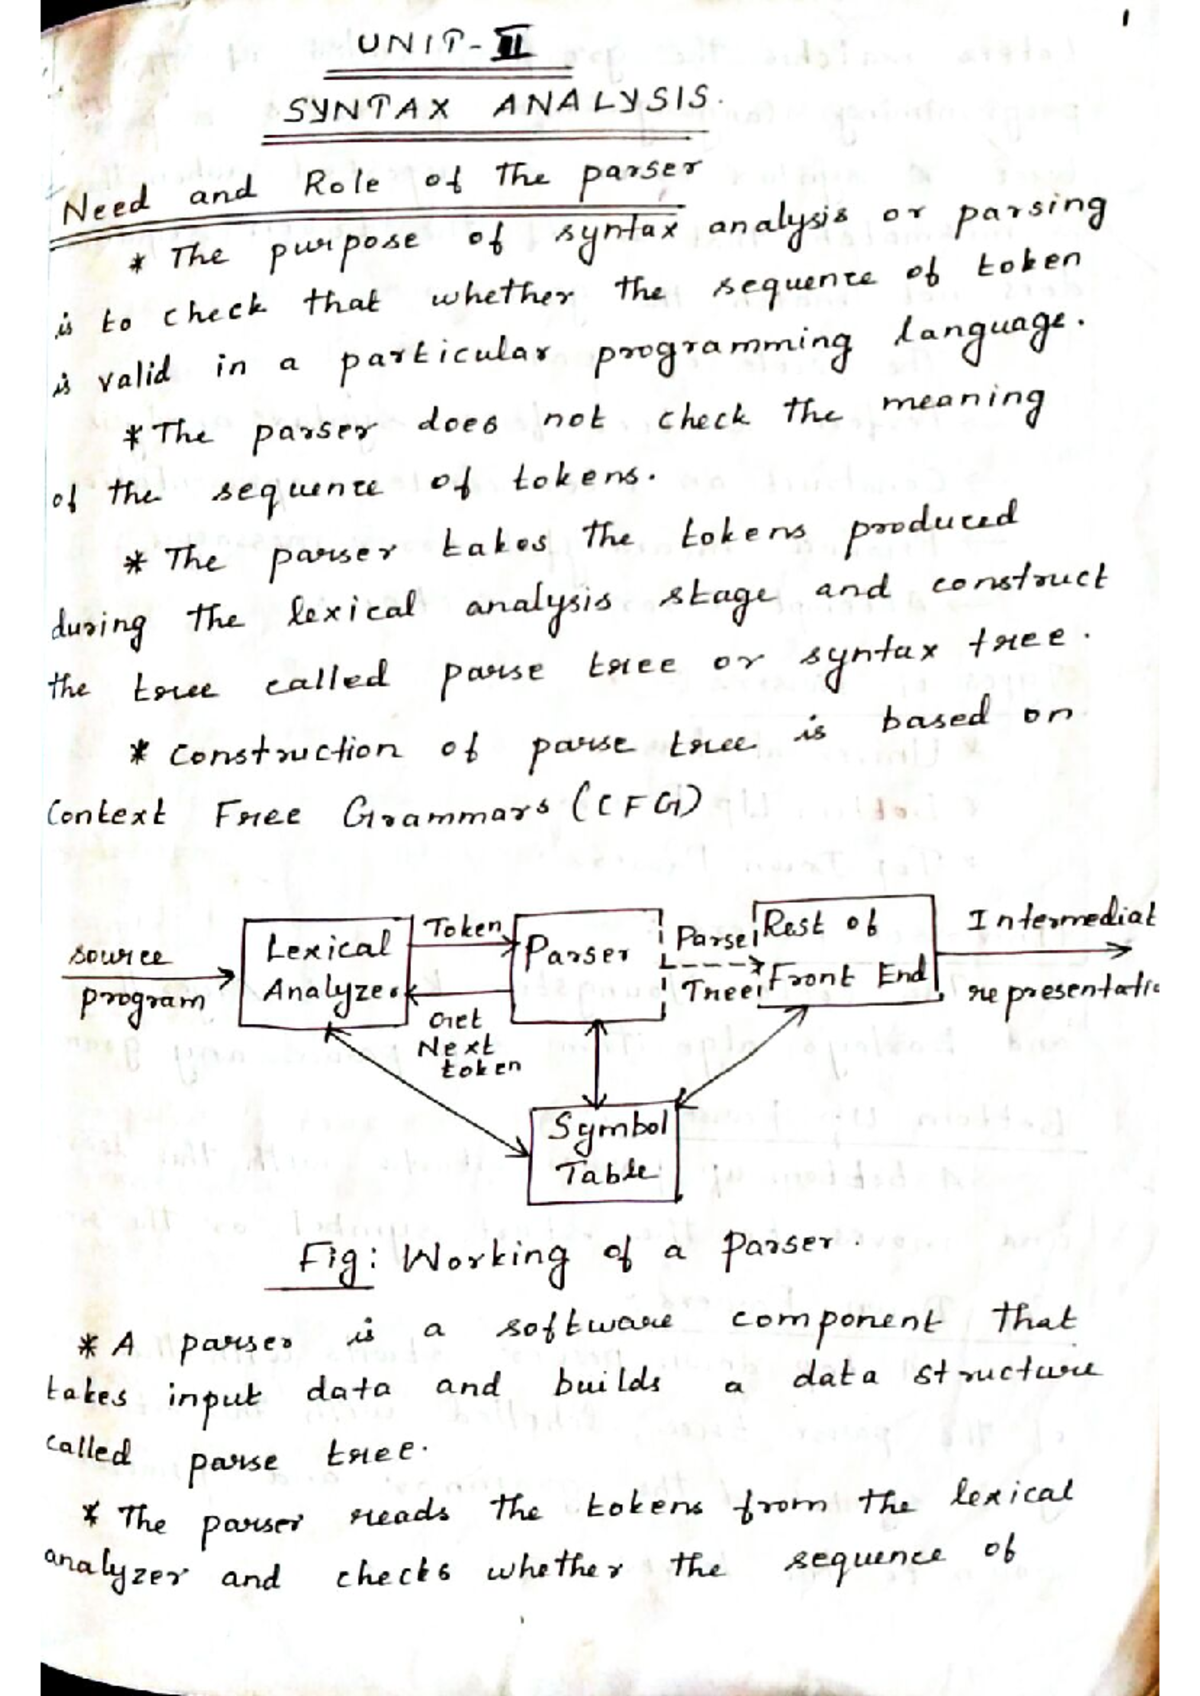 1
UNIT-II
SYNTAX ANALYSIS.
Need and Role of the parser
* The purpose of syntax analysis or parsing
is to check that whether the sequence of token
is valid in a particular programming language.
* The parser does not check the meaning
of the sequence of tokens.
* The parser takes the tokens produced
during the lexical analysis stage and construct
the tree called parse tree or syntax tree.
* Construction of parse tree is based on
Context Free Grammars (CFG)
source
program
Lexical
Analyzer
Token
Get
Next
token
Parser
Parse
Tree
Rest of
Front End
Intermediat
representatio
Symbol
Table
Fig: Working of a Parser.
* A parser is a software component that
takes input data and builds a data structure
called parse tree.
* The parser reads the tokens from the lexical
analyzer and checks whether the sequence of